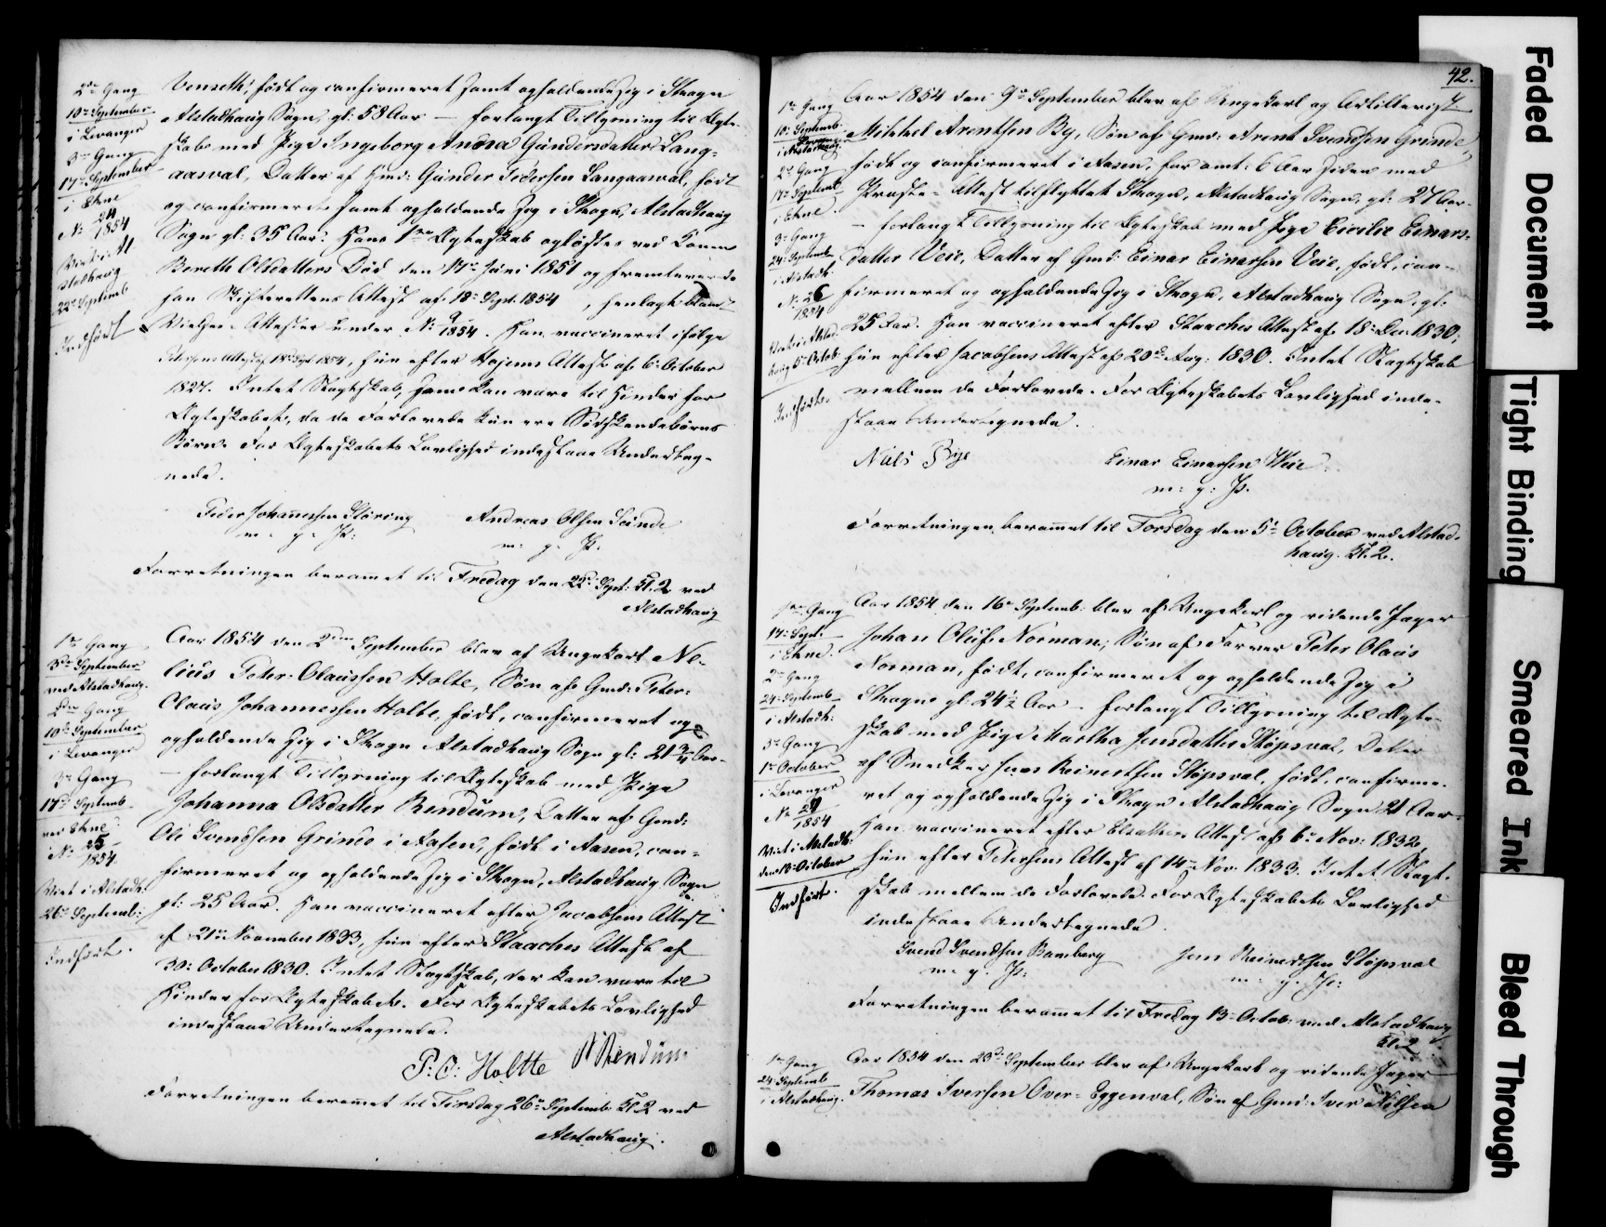 2den Gang
10de September
i Levanger
3die Gang
17de September
i Ekne
No 24/1854
Viet i Al
stadhaug
22de Septemb
Indført
Venseth, født og confirmeret samt opholdende sig i Skogn
Alstadhaug Sogn, gl: 58 Aar — forlangt Tillysning til Ægte-
skab med Pige Ingeborg Andrea Gundersdatter Lang-
aasval, Datter af Gmd: Gunder Pedersen Langaasval, født
og confirmeret samt opholdende sig i Skogn, Alstadhaug
Sogn gl: 35 Aar. Hans 1ste Ægteskab opløstes ved Konen
Bereth Olsdatters Død den 17de Juni 1851 og fremleverede
han Skifterettens Attest af 18de Sept: 1854, henlagt blandt
Vielses-Attester under No 9/1854. Han vaccineret ifølge
Petersens Attest af 18de Sept 1854, hun efter Hojems Attest af 6te October
1827. Intet Slægtskab, som kan være til Hinder for
Ægteskabet, da de Forlovede kun ere Sødskendebørns
Børn. For Ægteskabets Lovlighed indestaae Underteg-
nede.
Peder Johannessen Støring Andreas Olsen Lunde
m. p. P. m. p. P.
Forretningen berammet til Fredag den 22de Sept: Kl. 2 ved
Alstadhaug
1ste Gang
3die September
ved Alstadhaug.
2den Gang
10de September
i Levanger
3die Gang
17de Septemb
ved Ekne
No 25/1854
Viet i Alstadh:
26de Septemb:
Indført.
Aar 1854 den 2den September blev af Ungekarl Ne-
lius Peter Olaussen Holte, Søn af Gmd: Peter
Olaus Johannessen Holte, født, confirmeret og
opholdende sig i Skogn Alstadhaug Sogn gl: 21 Aar
— forlangt Tillysning til Ægteskab med Pige
Johanna Olsdatter Rendum, Datter af Gmd:
Ole Svendsen Grinde i Aasen, født i Aasen, con-
firmeret og opholdende sig i Skogn, Alstadhaug Sogn
gl: 25 Aar. Han vaccineret efter Jacobsens Attest
af 21de November 1833, hun efter Staaches Attest af
30te October 1830. Intet Slægtskab, der kan være til
Hinder for Ægteskabet. For Ægteskabets Lovlighed
indestaae Undertegnede.
P: O: Holtte Rendum
Forretningen berammet til Tirsdag 26de Septemb Kl. 2 ved
Alstadhaug.
42.
1ste Gang
10de Septemb.
i Alstadhaug
2den Gang
17de Septemb
i Ekne.
3die Gang
24de Septemb
i Alstadh:
No 26/1854
Viet i Alstad
haug 5te Octob.
Indført.
Aar 1854 den 9de September blev af Ungekarl og Artillerist
Mikkel Arentsen By, Søn af Gmd: Arent Svendsen Grinde,
født og confirmeret i Aasen, har omt: 6 Aar siden med
Præste-Attest tilflyttet Skogn, Alstadhaug Sogn, gl: 27 Aar
— forlangt Tillysning til Ægteskab med Pige Cicilie Einars-
datter Veie, Datter af Gmd: Einar Einarsen Veie, født, con-
firmeret og opholdende sig i Skogn, Alstadhaug Sogn, gl:
25 Aar. Han vaccineret efter Staaches Attest af 18de Dec 1830,
hun efter Jacobsens Attest af 20de Aug: 1830. Intet Slægtskab
mellem de Forlovede. For Ægteskabets Lovlighed inde-
staae Undertegnede.
Nils Bye Einar Einarsen Weie
m: p: P.
Forretningen berammet til Torsdag den 5te October ved Alstad-
haug. Kl. 2.
1ste Gang
17de Sept.
i Ekne.
2den Gang
24de Septemb
i Alstadh:
3die Gang
1ste October
i Levanger
No 27/1854
Viet i Alstadh:
den 13de October
Indført.
Aar 1854 den 16de Septemb: blev af Ungekarl og ridende Jæger
Johan Oluf Norman, Søn af Farver Peter Olaus
Norman, født, confirmeret og opholdende sig i
Skogn gl: 24½ Aar — forlangt Tillysning til Ægte-
skab med Pige Martha Jensdatter Støpsval, Datter
af Snedker Jens Reinertsen Støpsval, født, confirme-
ret og opholdende sig i Skogn Alstadhaug Sogn 21 Aar
Han vaccineret efter Attest af 6te Nov: 1832,
hun efter Petersens Attest af 14de Nov. 1833. Intet Slægt-
skab mellem de Forlovede. For Ægteskabets Lovlighed
indestaae Undertegnede.
Svend Svendsen Bamberg Jens Reinertsen Støpsval
m. p. P: m. p. P:
Forretningen berammet til Fredag 13de Octob: ved Alstadhaug
Kl. 2
1ste Gang
24de Septemb
i Alstadhaug.
Aar 1854 den 23de September blev af Ungekarl og ridende Jæger
Thomas Iversen Over-Eggenval, Søn af Gmd: Iver Nilsen
Faded Document
Tight Binding
Smeared Ink
Bleed Through